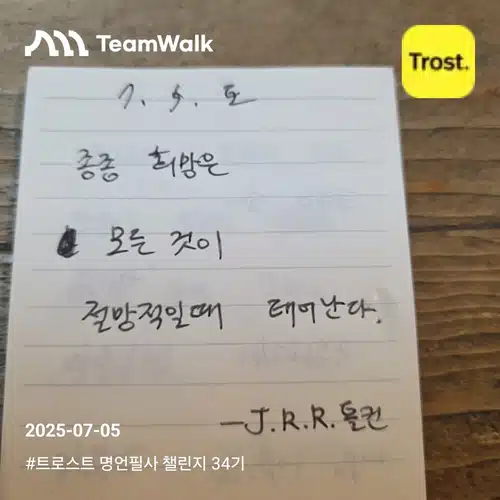 TeamWalk
Trost.
7. 5. 토
종종 희망은
모든 것이
절망적일때 태어난다.
-J.R.R. 톨킨
2025-07-05
#트로스트 명언필사 챌린지 34기